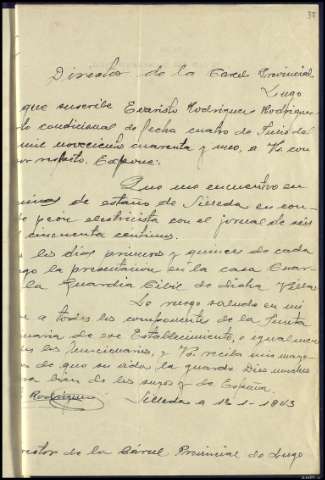 37
Director de la Carcel Provincial
Lugo
que suscribe Evaristo Rodriguez Rodriguez
condicional de fecha cuatro de Junio del
mil novecientos cuarenta y uno, a Vd con
respeto. Expone:
Que me encuentro en
minas de estaño de Silleda en con
peon electricista con el jornal de seis
cincuenta centimos.
los dias primeros y quinces de cada
la presentacion en la casa Cuar
la Guardia Civil de dicha Villa
Le ruego salude en mi
a todos los componentes de la Junta
de ese Establecimiento, e igualmen
los funcionarios, y Vd. reciba mis
de que su vida la guarde Dios muchos
bien de los suyos y de España.
Rodriguez Silleda a 12-1-1943
de la Cárcel Provincial de Lugo